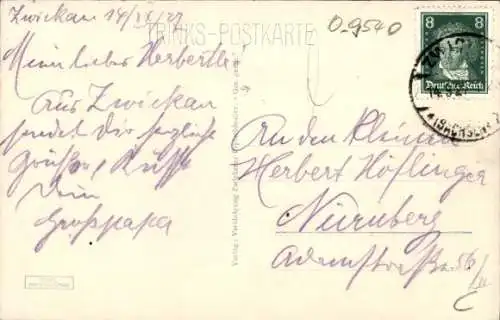 Zwickau 14/IX/27
TRINKS-POSTKARTE
0-9540
8 8
Deutsches Reich
Mein lieber Herbertle!
Aus Zwickau
sendet Dir herzliche
Grüße u. Küsse
Dein
Grosspapa
An den kleinen
Herbert Höflinger
Nürnberg
Adamstraße 56/II